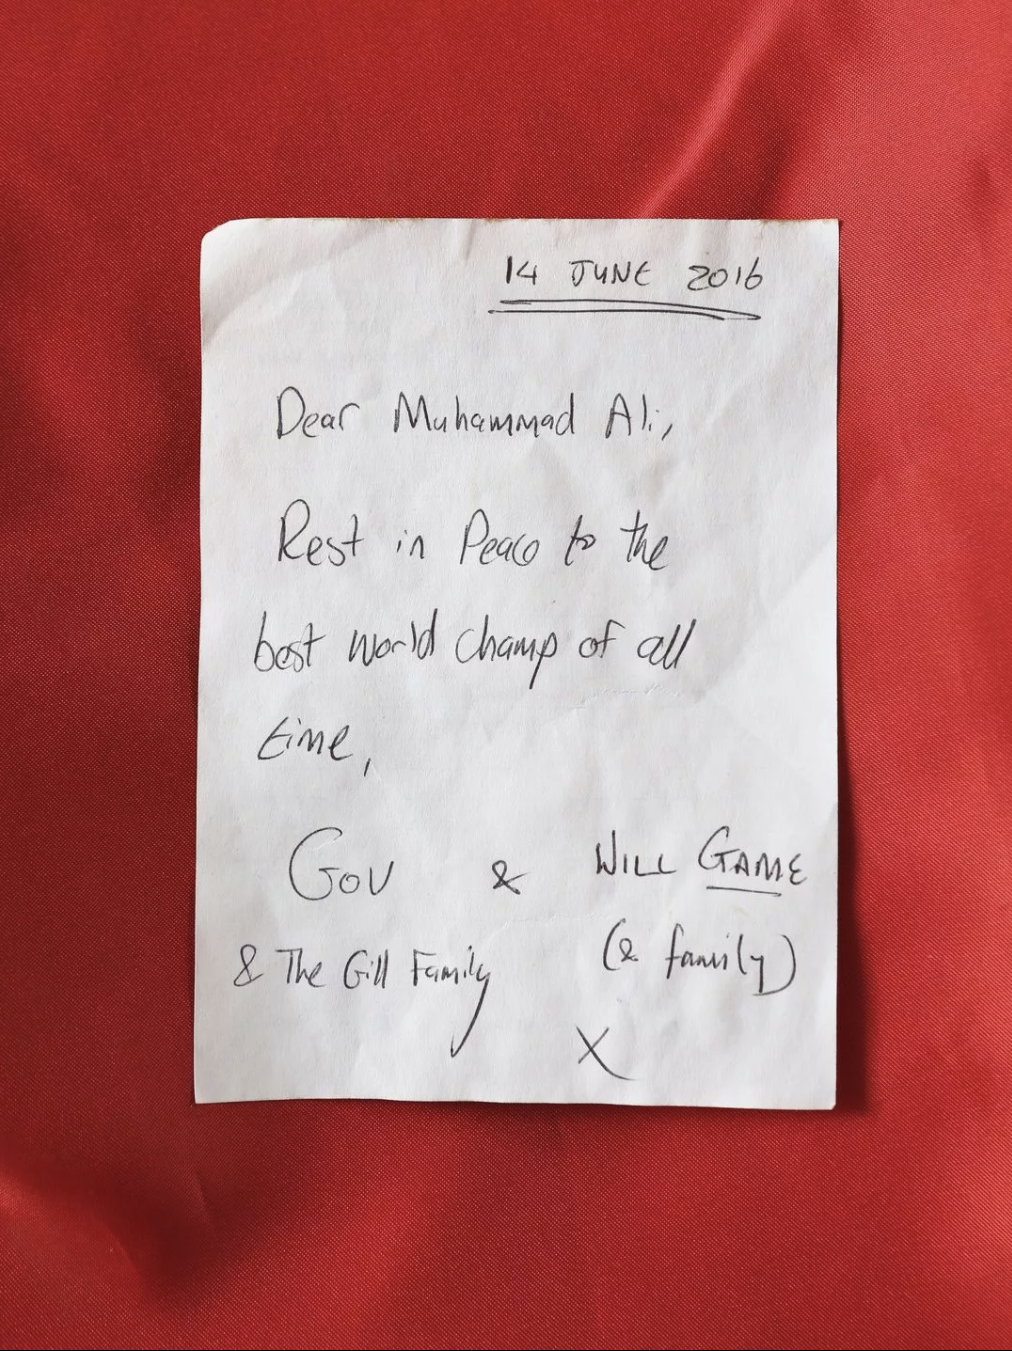 14 JUNE 2016
Dear Muhammad Ali,
Rest in Peace to the
best world champ of all
time,
GOV & WILL GAME
& The Gill Family (& family)
X